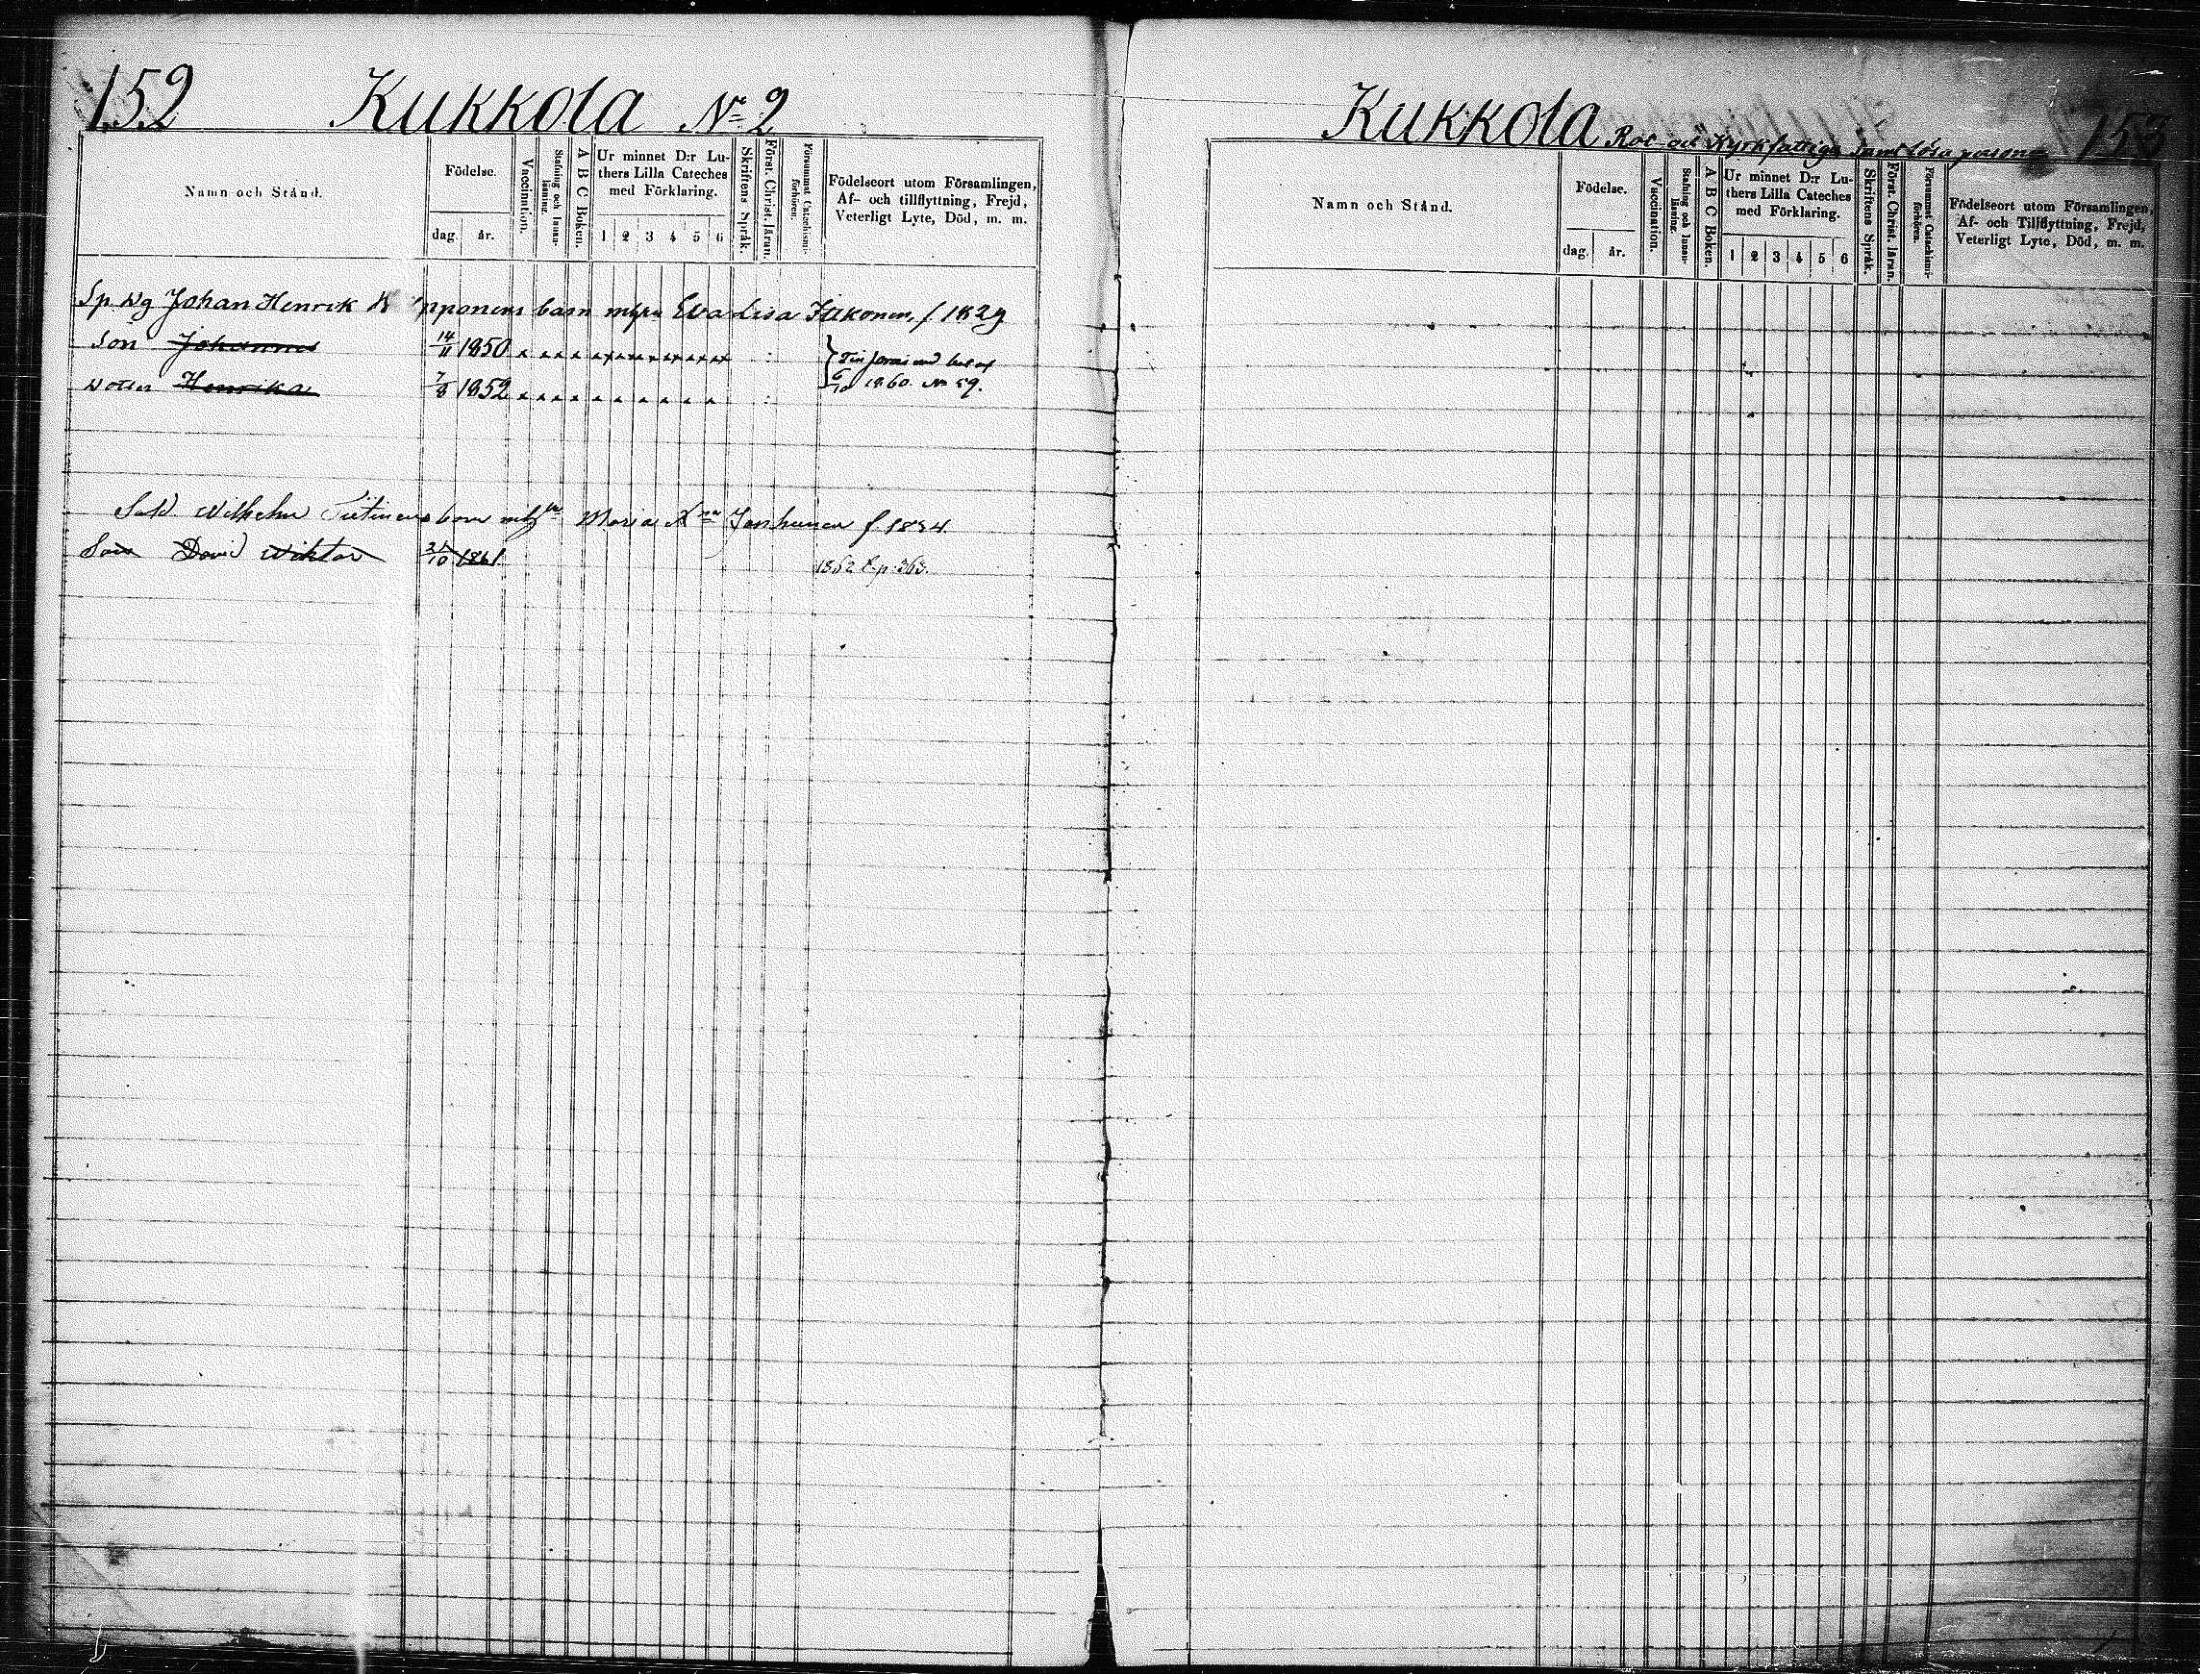 152 Kukkola No 2
Namn och Stånd.
Födelse.
dag. år.
Vaccination.
Stafning och Innanläsning.
A B C Boken.
Ur minnet D:r Lu-
thers Lilla Cateches
med Förklaring.
1 2 3 4 5 6
Skriftens Språk.
Först. Christ. läran.
Försummat Catechismi-
förhören.
Födelseort utom Församlingen,
Af- och tillflyttning, Frejd,
Veterligt Lyte, Död, m. m.
Sp Dg Johan Henrik pponens barn Eva Lisa f 1829
Son Johannes 14/11 1850
Dotter Henrika 7/8 1852
6/10 1860. No 59.
Sold. Wilhelm barn Maria f. 1834
Son David Wiktor 21/10 1861. 1862 p. 363.
Kukkola Rot- och Kyrkfattige samt lösa personer 153
Namn och Stånd.
Födelse.
dag. år.
Vaccination.
Stafning och Innanläsning.
A B C Boken.
Ur minnet D:r Lu-
thers Lilla Cateches
med Förklaring.
1 2 3 4 5 6
Skriftens Språk.
Först. Christ. läran.
Försummat Catechismi-
förhören.
Födelseort utom Församlingen,
Af- och Tillflyttning, Frejd,
Veterligt Lyte, Död, m. m.